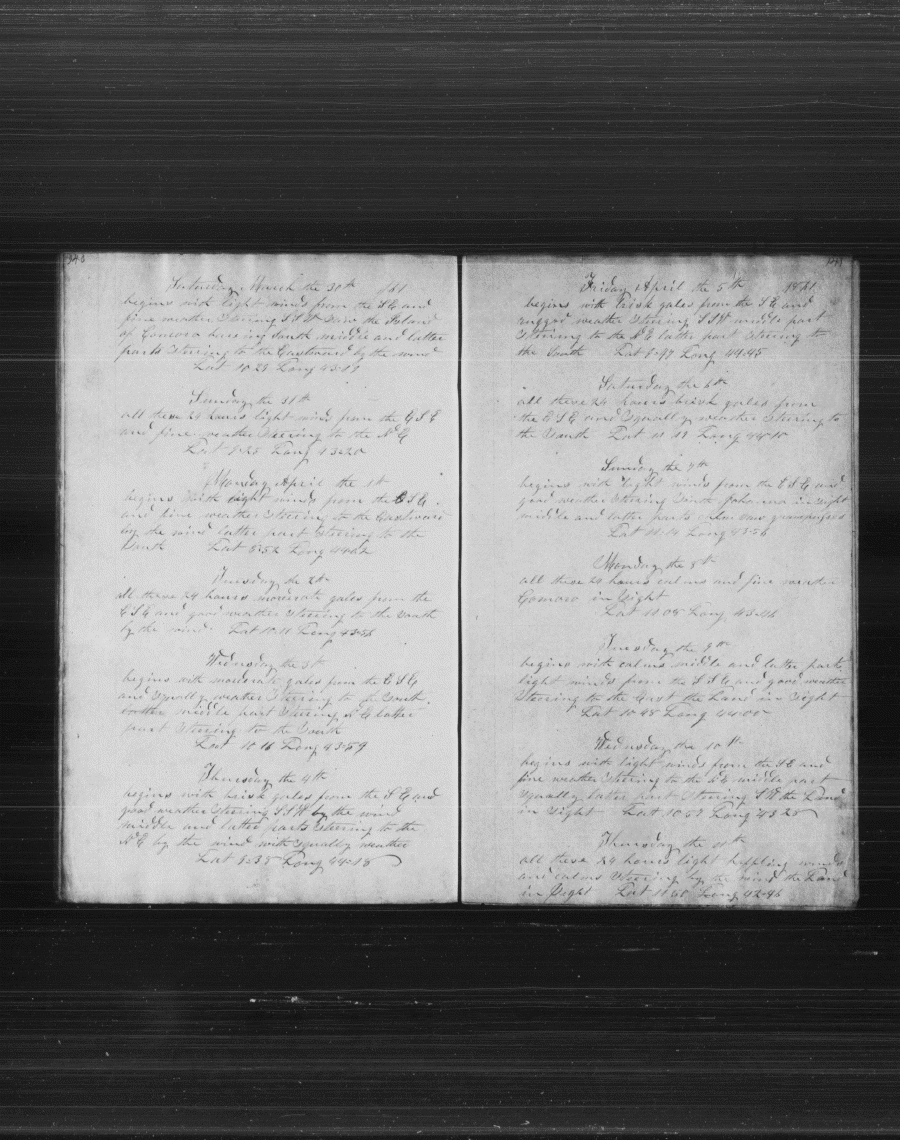 Saturday March the 30th 1861
begins with light winds from the S E and
fine weather Steering S S W Saw the Island
of Comora bearing South middle and latter
parts Steering to the Eastward by the wind
Lat 10-29 Long 43-19
Sunday the 31th
all these 24 hours light wind from the E S E
and fine weather Steering to the N E
Lat 9-25 Long 43-20
Monday April the 1st
begins with light winds from the E S E
and fine weather Steering to the Eastward
by the wind latter part Steering to the
South Lat 8-52 Long 44-02
Tuesday the 2th
all these 24 hours moderate gales from the
E S E and good weather Steering to the South
by the wind Lat 10-11 Long 43-56
Wednesday the 3th
begins with moderate gales from the E S E
and Squally weather Steering to the South
middle part Steering N E latter
part Steering to the South
Lat 10-16 Long 43-59
Thursday the 4th
begins with brisk gales from the S E and
good weather Steering S S W by the wind
middle and latter parts Steering to the
N E by the wind with Squally weather
Lat 9-35 Long 44-18
Friday April the 5th 1861
begins with brisk gales from the S E and
rugged weather Steering S S W middle part
Steering to the N E latter part Steering to
the South Lat 9-47 Long 44-45
Saturday the 6th
all these 24 hours brisk gales from
the E S E and Squally weather Steering to
the South Lat 11-13 Long 44-10
Sunday the 7th
begins with light winds from the E S E and
good weather Steering South Johanna in Sight
middle and latter parts calm saw grampuses
Lat 11-14 Long 43-56
Monday the 8th
all these 24 hours calms and fine weather
Comoro in Sight
Lat 11-05 Long 43-46
Tuesday the 9th
begins with calms middle and latter part
light winds from the S S E and good weather
Steering to the East the Land in Sight
Lat 10-48 Long 44-00
Wednesday the 10th
begins with light winds from the S E and
fine weather Steering to the N E middle part
Squally latter part Steering S W the Land
in Sight Lat 10-57 Long 43-25
Thursday the 11th
all these 24 hours light baffling winds
and calms Steering by the wind the Land
in Sight Lat 11-50 Long 42-46